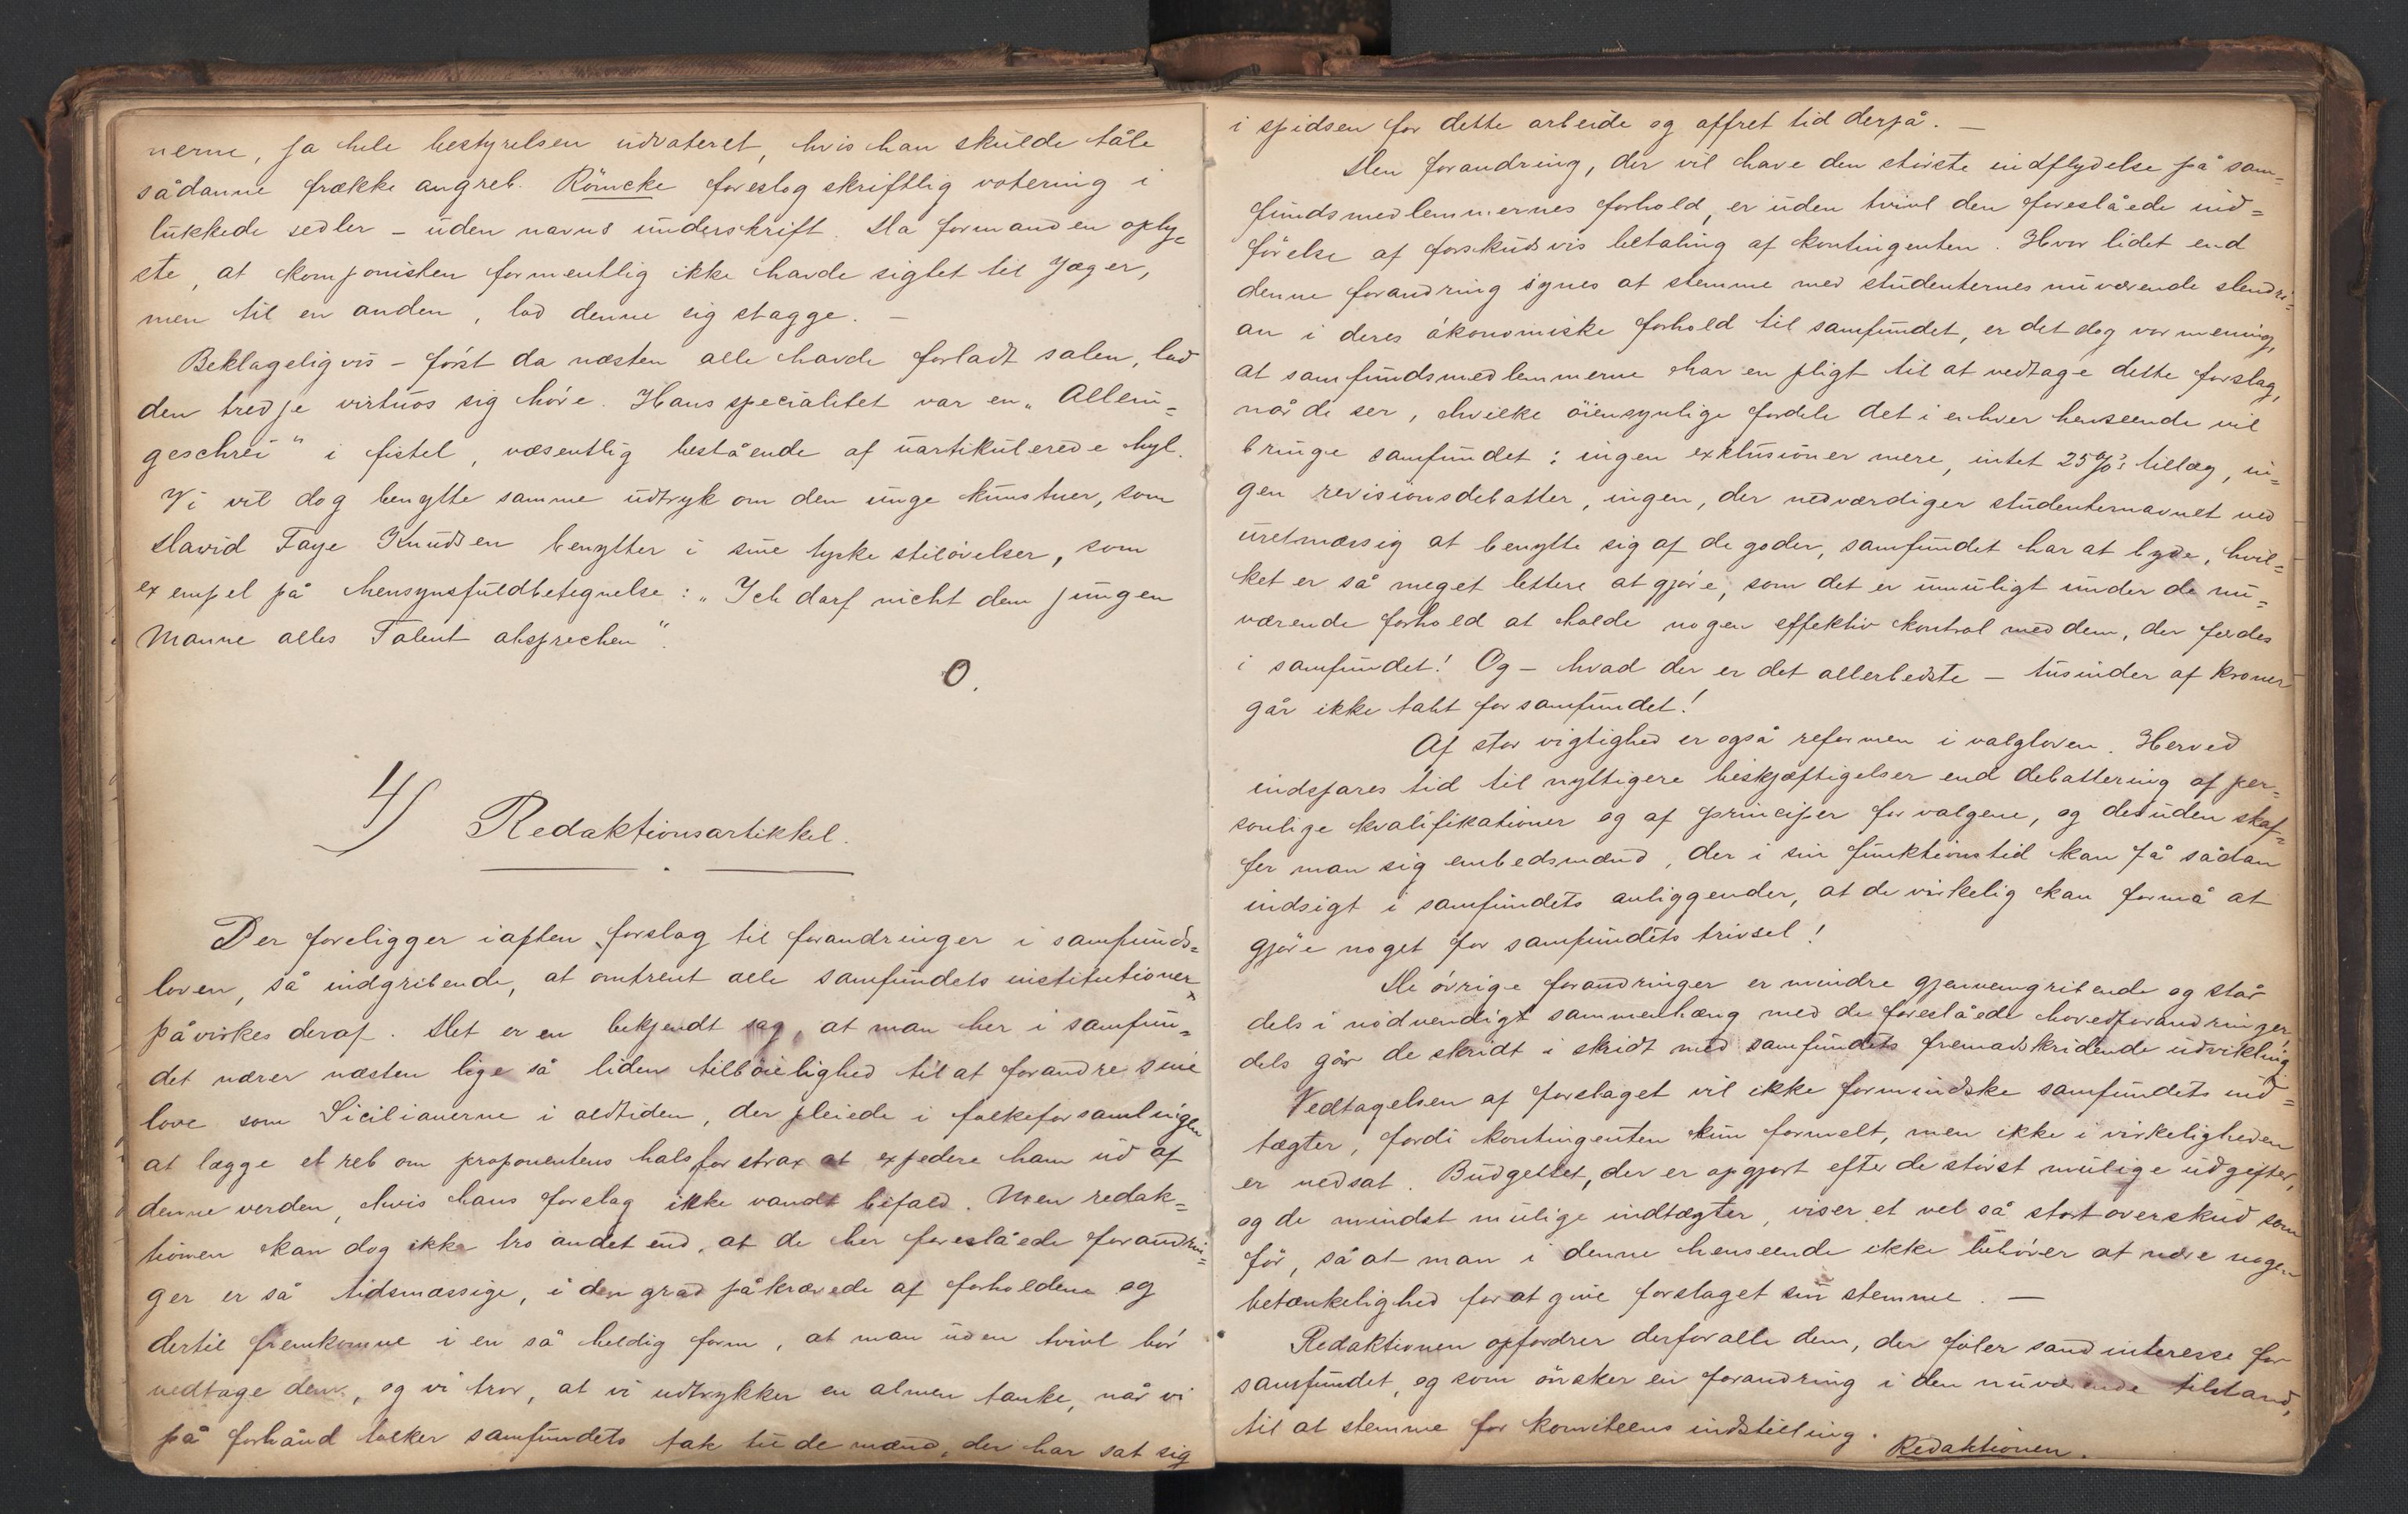 nerne, ja hele bestyrelsen udvoteret, hvis han skulde tåle
sådanne frække angreb. Römcke foreslog skriftlig votering i
lukkede sedler – uden navns underskrift. Da formanden oply-
ste, at komponisten formentlig ikke havde sigtet til Jæger,
men til en anden, lod denne sig stagge. –
Beklageligvis – först da næsten alle havde forladt salen, lod
den tredje virtuos sig höre. Hans specialitet var en „Allein=
geschrei“ i fistel, væsentlig bestående af uartikulerede hyl.
Vi vil dog benytte samme udtryk om den unge kunstner, som
David Faye Knudsen benytter i sine tyske stilövelser, som
exempel på hensynsfuldbetegnelse: „Ich darf nicht dem jungen
Manne alles Talent absprechen“.
O.
4) Redaktionsartikkel.
Der foreligger iaften forslag til forandringer i samfunds=
loven, så indgribende, at omtrent alle samfundets institutioner
påvirkes deraf. Det er en bekjendt sag, at man her i samfun=
det nærer næsten lige så liden tilböielighed til at forandre sine
love som Sicilianerne i oldtiden, der pleiede i folkeforsamlingen
at lægge et reb om proponentens hals for strax at expedere ham ud af
denne verden, hvis hans forslag ikke vandt bifald. Men redak=
tionen kan dog ikke tro andet end, at de her foreslåede forandrin=
ger er så tidsmæssige, i den grad påkrævede af forholdene og
dertil fremkomne i en så heldig form, at man uden tvivl bör
vedtage dem, og vi tror, at vi udtrykker en almen tanke, når vi
på forhånd tolker samfundets tak til de mænd, der har sat sig
i spidsen for dette arbeide og offret tid derpå. –
Den forandring, der vil have den störste indflydelse på sam=
fundsmedlemmernes forhold, er uden tvivl den foreslåede ind=
förelse af forskudsvis betaling af kontingenten. Hvor lidet end
denne forandring synes at stemme med studenternes nuværende slendri=
an i deres ökonomiske forhold til samfundet, er det dog vor mening,
at samfundsmedlemmerne har en pligt til at vedtage dette forslag,
når de ser, hvilke öiensynlige fordele det i enhver henseende vil
bringe samfundet: ingen exklusioner mere, intet 25%s tillæg, in=
gen revisionsdebatter, ingen, der nedværdiger studenternavnet ved
uretmæssig at benytte sig af de goder, samfundet har at byde, hvil=
ket er så meget lettere at gjöre, som det er umuligt under de nu=
værende forhold at holde nogen effektiv kontrol med dem, der færdes
i samfundet! Og – hvad der er det allerbedste – tusinder af kroner
går ikke tabt for samfundet!
Af stor vigtighed er også reformen i valgloven. Herved
indspares tid til nyttigere beskjæftigelser end debattering af per=
sonlige kvalifikationer og af principer for valgene, og desuden skaf=
fer man sig embedsmænd, der i sin funktionstid kan få sådan
indsigt i samfundets anliggender, at de virkelig kan formå at
gjöre noget for samfundets trivsel!
De övrige forandringer er mindre gjennemgribende og står
dels i nödvendigt sammenhæng med de foreslåede hovedforandringer,
dels går de skridt i skridt med samfundets fremadskridende udvikling.
Vedtagelsen af forslaget vil ikke formindske samfundets ind=
tægter, fordi kontingenten kun formelt, men ikke i virkeligheden
er nedsat. Budgettet, der er opgjort efter de störst mulige udgifter,
og de mindst mulige indtægter, viser et vel så stort overskud som
för, så at man i denne henseende ikke behöver at nære nogen
betænkelighed for at give forslaget sin stemme. –
Redaktionen opfordrer derfor alle dem, der föler sand interesse for
samfundet, og som önsker en forandring i den nuværende tilstand,
til at stemme for komiteens indstilling. Redaktionen.